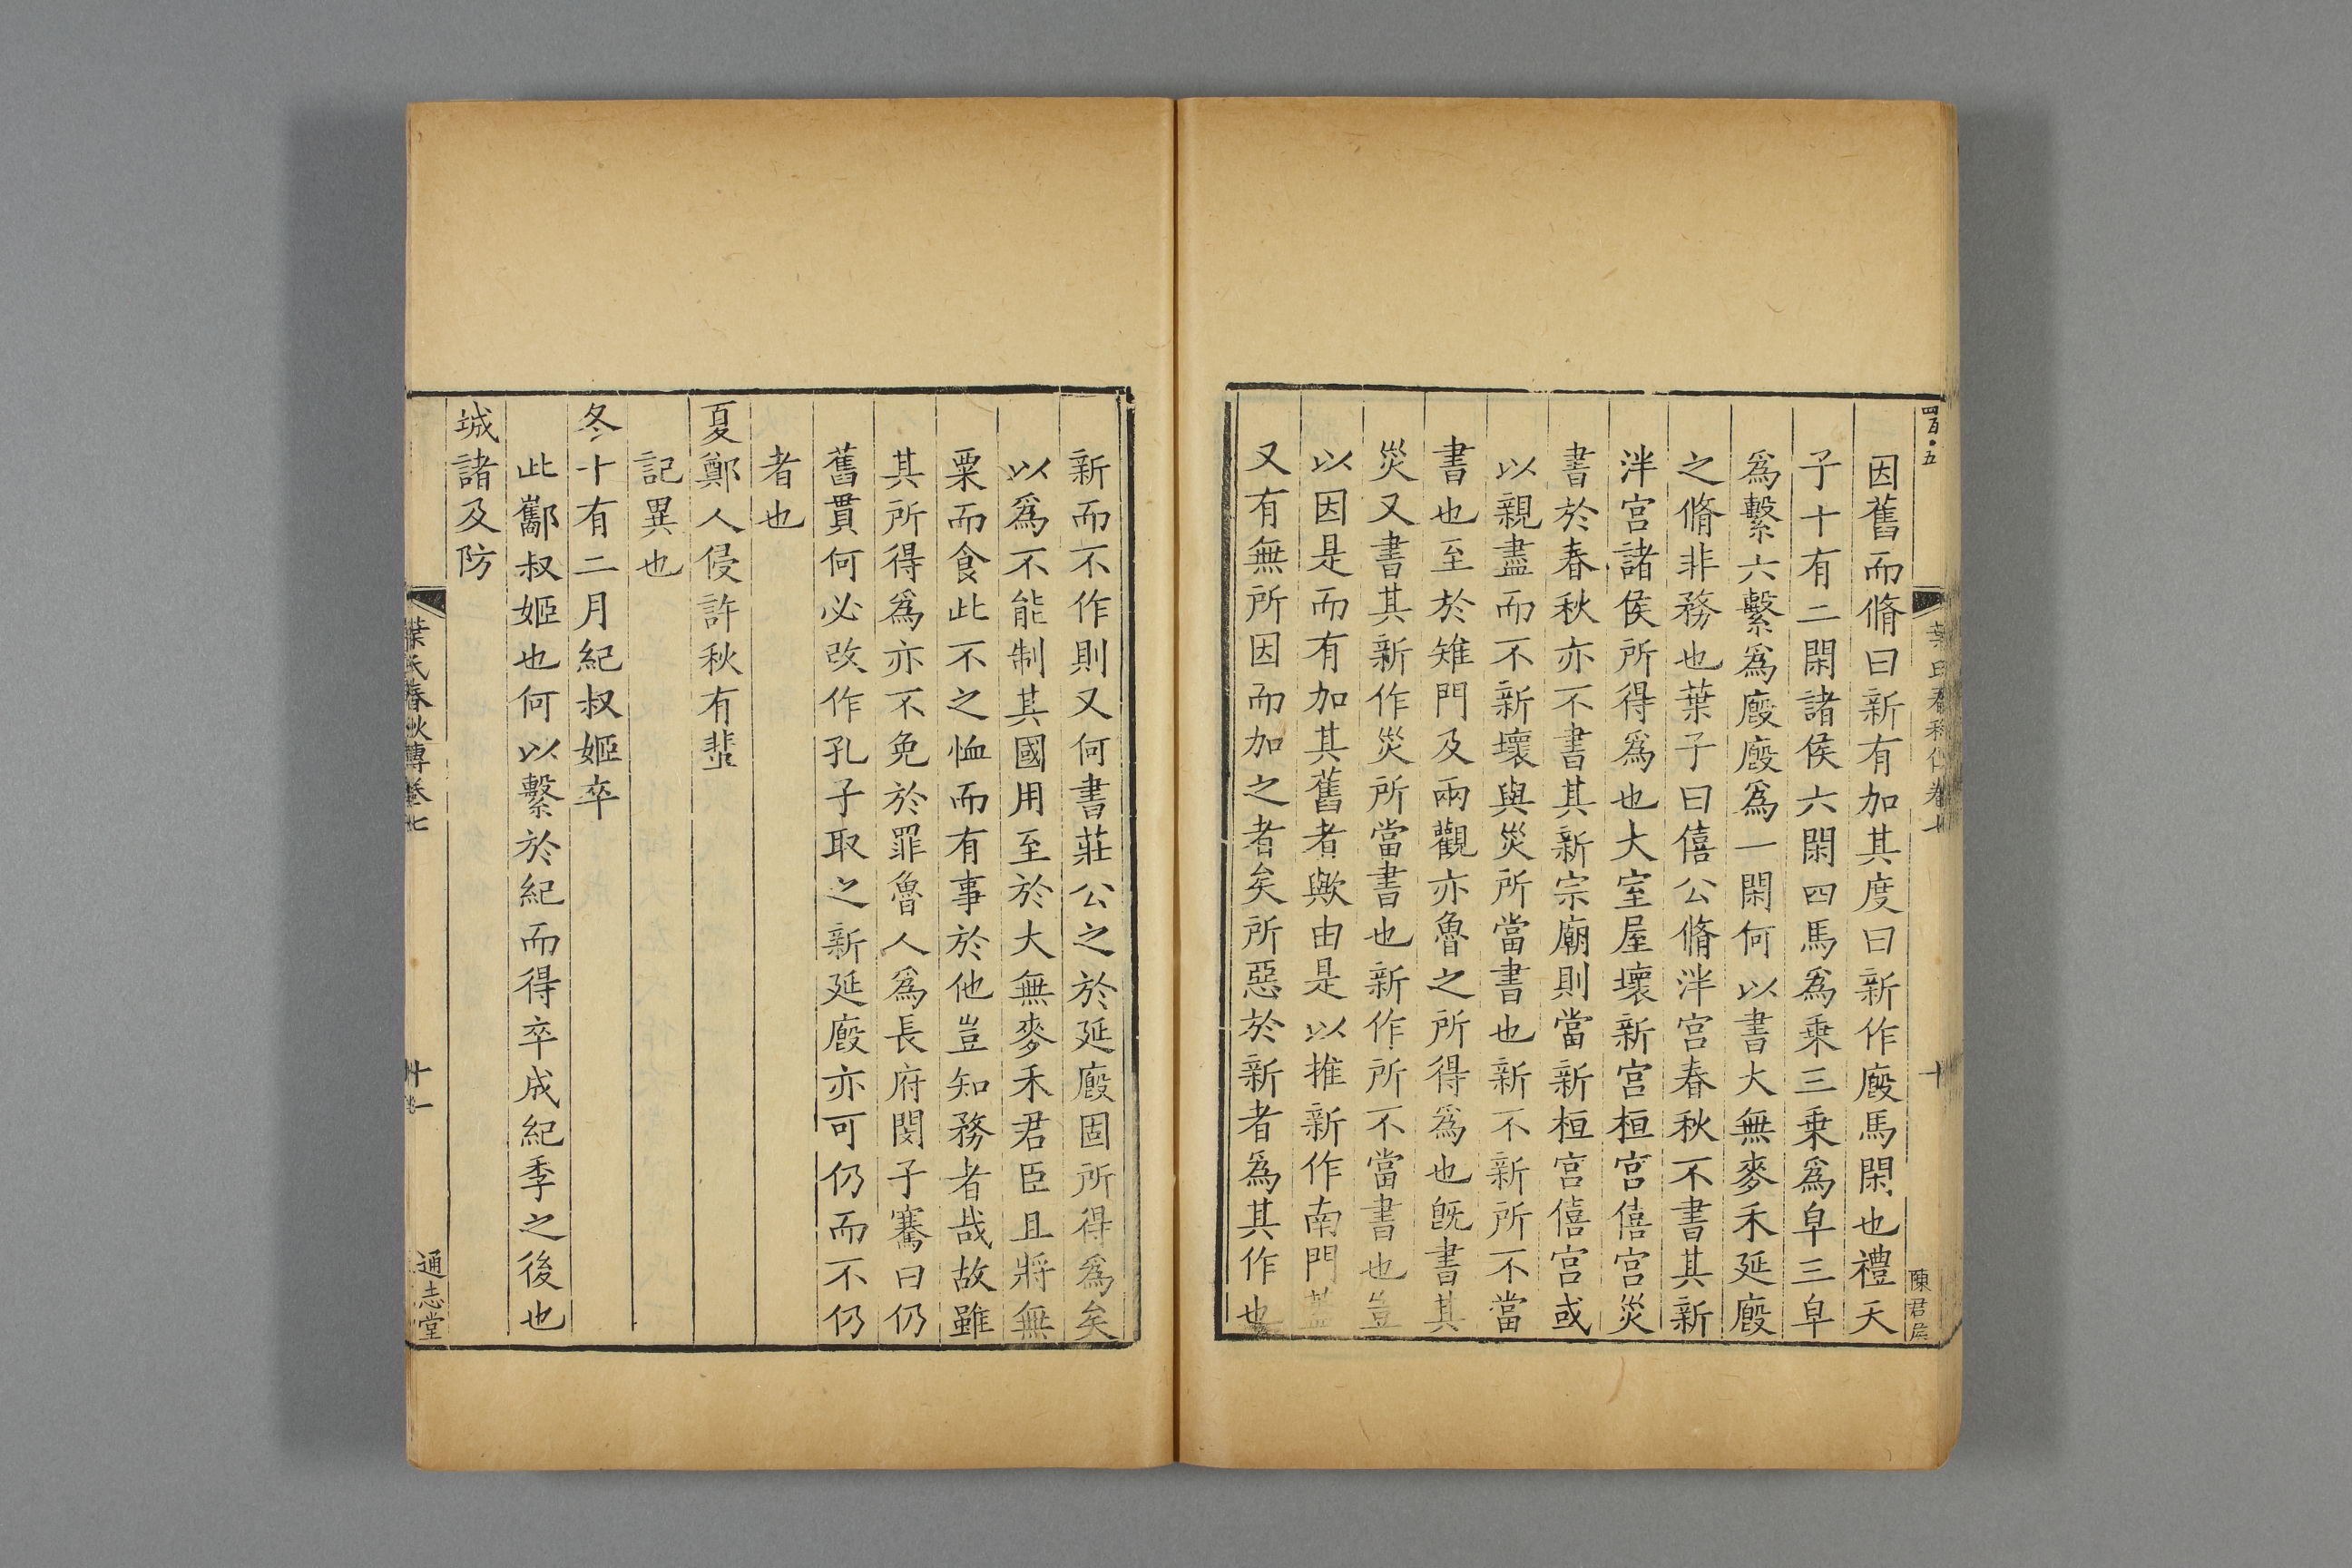 四百五
葉氏春秋傳卷七
十
陳君
因舊而脩曰新有加其度曰新作廏馬閑也禮天
子十有二閑諸侯六閑四馬爲乗三乗爲皁三皁
爲繫六繫爲廏廏爲一閑何以書大無麥禾延廏
之脩非務也葉子曰僖公脩泮宫春秋不書其新
泮宫諸侯所得爲也大室屋壞新宫桓宫僖宫災
書於春秋亦不書其新宗廟則當新桓宫僖宫或
以親盡而不新壞與災所當書也新不新所不當
書也至於雉門及兩觀亦魯之所得爲也旣書其
災又書其新作災所當書也新作所不當書也豈
以因是而有加其舊者歟由是以推新作南門蓋
又有無所因而加之者矣所惡於新者爲其作也
新而不作則又何書莊公之於延廏固所得爲矣
以爲不能制其國用至於大無麥禾君臣且將無
粟而食此不之恤而有事於他豈知務者哉故雖
其所得爲亦不免於罪魯人爲長府閔子騫曰仍
舊貫何必改作孔子取之新延廏亦可仍而不仍
者也
夏鄭人侵許秋有蜚
記異也
冬十有二月紀叔姬卒
此酅叔姬也何以繫於紀而得卒成紀季之後也
城諸及防
葉氏春秋傳卷七
十一
通志堂